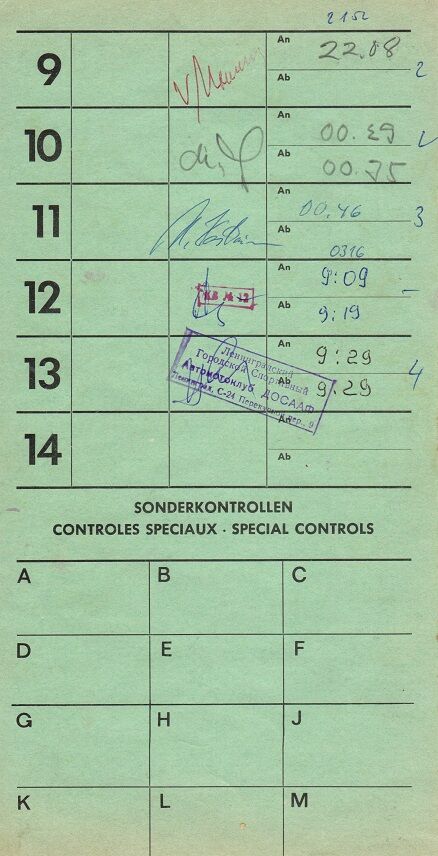 2152
9
An
22.08
Ab
2
10
An
00.29
Ab
00.75
11
An
00.46
3
Ab
0316
12
КВ № 12
An
9:09
Ab
9:19
13
Ленинградский
Городской Спортивный
Автомотоклуб ДОСААФ
Ленинград, С-24 Перекупной пер., 9
An
9:29
Ab
9:29
4
14
An
Ab
SONDERKONTROLLEN
CONTROLES SPECIAUX · SPECIAL CONTROLS
A
B
C
D
E
F
G
H
J
K
L
M